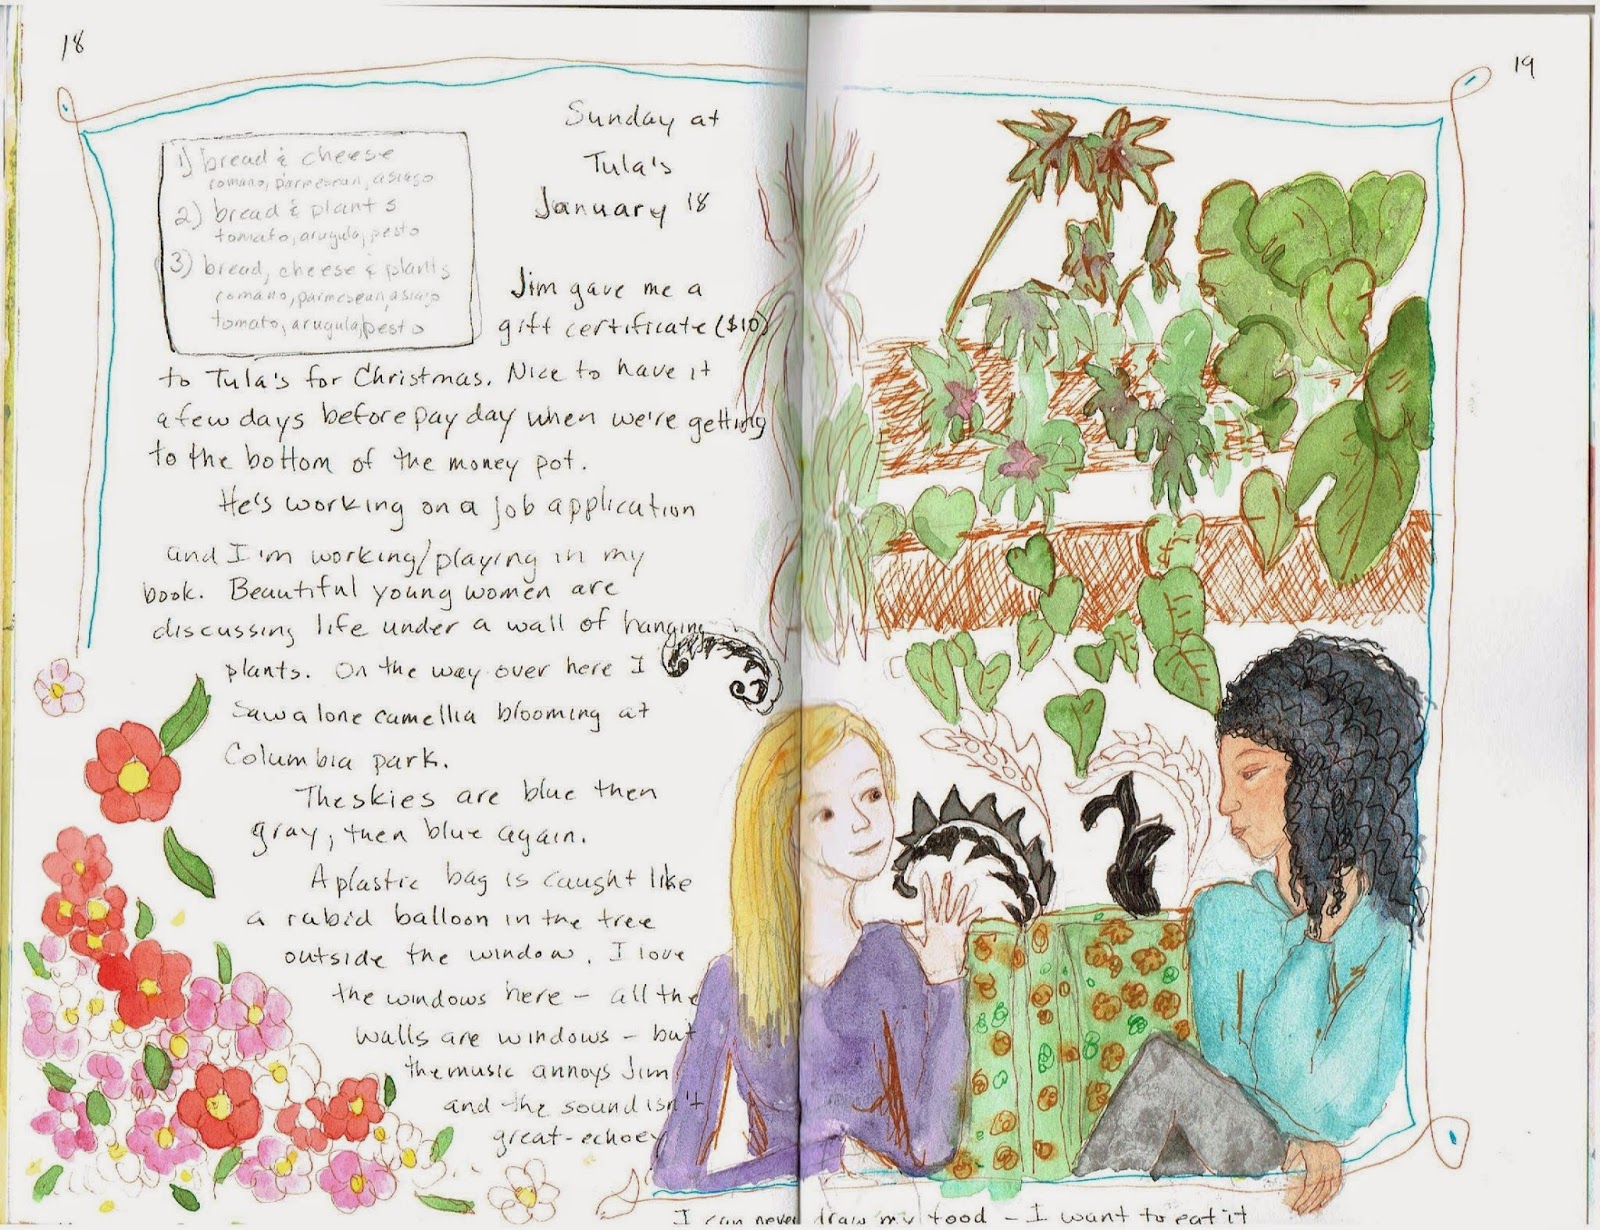 18
19
Sunday at
Tula's
January 18
1) bread & cheese
romano, parmesean, asiago
2) bread & plants
tomato, arugula, pesto
3) bread, cheese & plants
romano, parmesean, asiago
tomato, arugula, pesto
Jim gave me a
gift certificate ($10)
to Tula's for Christmas. Nice to have it
a few days before pay day when we're getting
to the bottom of the money pot.
He's working on a job application
and I'm working/playing in my
book. Beautiful young women are
discussing life under a wall of hanging
plants. On the way over here I
saw a lone camellia blooming at
Columbia park.
The skies are blue then
gray, then blue again.
A plastic bag is caught like
a rabid balloon in the tree
outside the window. I love
the windows here - all the
walls are windows - but
the music annoys Jim
and the sound isn't
great - echoey
I can never draw my food - I want to eat it